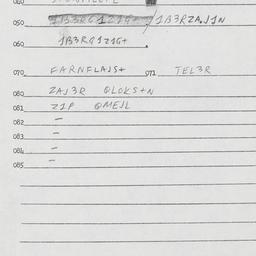 050 1B3RZAJ1N
060 1B3RG1Z1G+
070 FARNFLAJS+ 071 TEL3R
080 ZAJ3R QLOKS+N
081 Z1P QMEJL
082 –
083 –
084 –
085 –